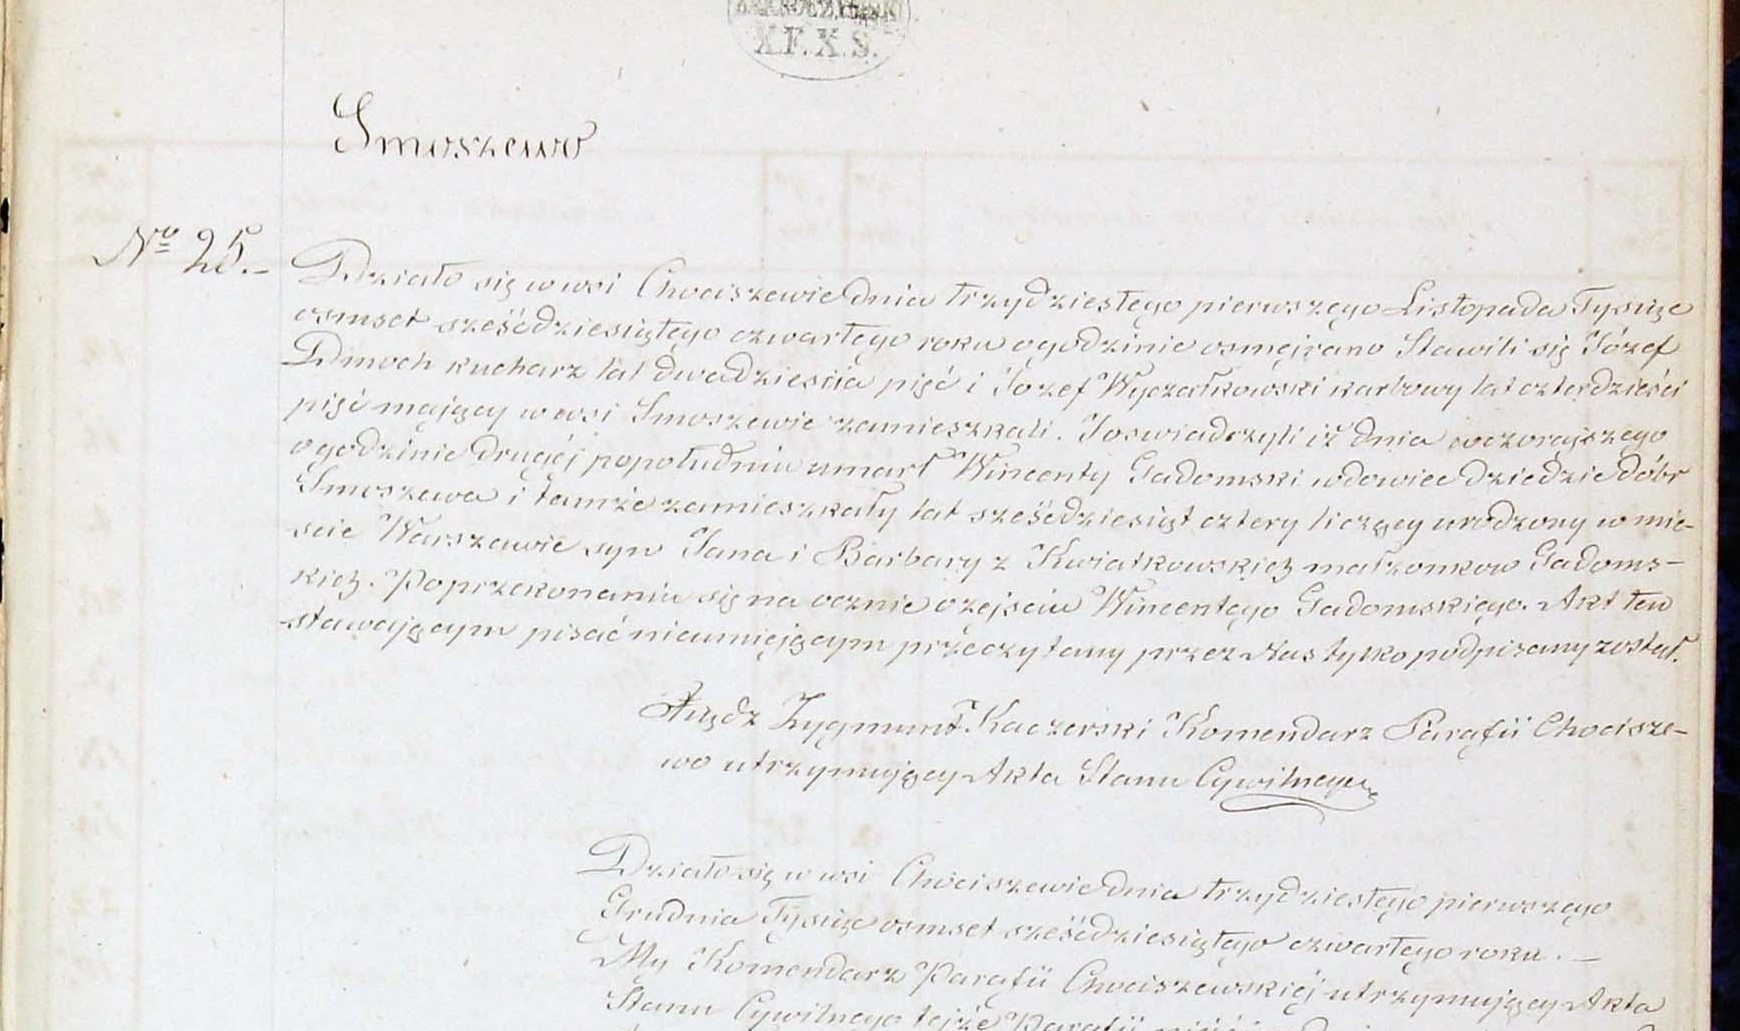 X.F.X.S.
Smoszewo
No 25.-
Działo się w wsi Chociszewie dnia trzydziestego pierwszego Listopada Tysiąc
osmset sześćdziesiątego czwartego roku o godzinie osmej rano Stawili się Józef
Dmoch kucharz lat dwadzieścia pięć i Jozef Wyczałkowski karbowy lat czterdzieści
pięć mający w wsi Smoszewie zamieszkali. I oswiadczyli iż dnia wczorajszego
o godzinie drugiéj popołudniu umarł Wincenty Gadomski wdowiec dziedzic dóbr
Smoszewa i tamże zamieszkały lat sześćdziesiąt cztery liczący urodzony w mie-
scie Warszawie syn Jana i Barbary z Kwiatkowskich małżonkow Gadoms-
kich. Po przekonaniu się na ocznie o zejsciu Wincentego Gadomskiego. Akt ten
stawającym pisać nieumiejącym przeczytany przez Nas tylko podpisany został.
Xiądz Zygmunt Kaczorski Komendarz Parafii Chocisze-
wo utrzymujący Akta Stanu Cywilnego
Działo się w wsi Chociszewie dnia trzydziestego pierwszego
Grudnia Tysiąc osmset sześćdziesiątego czwartego roku. -
My Komendarz Parafii Chociszewskiéj utrzymujący Akta
Stanu Cywilnego tejże Parafii